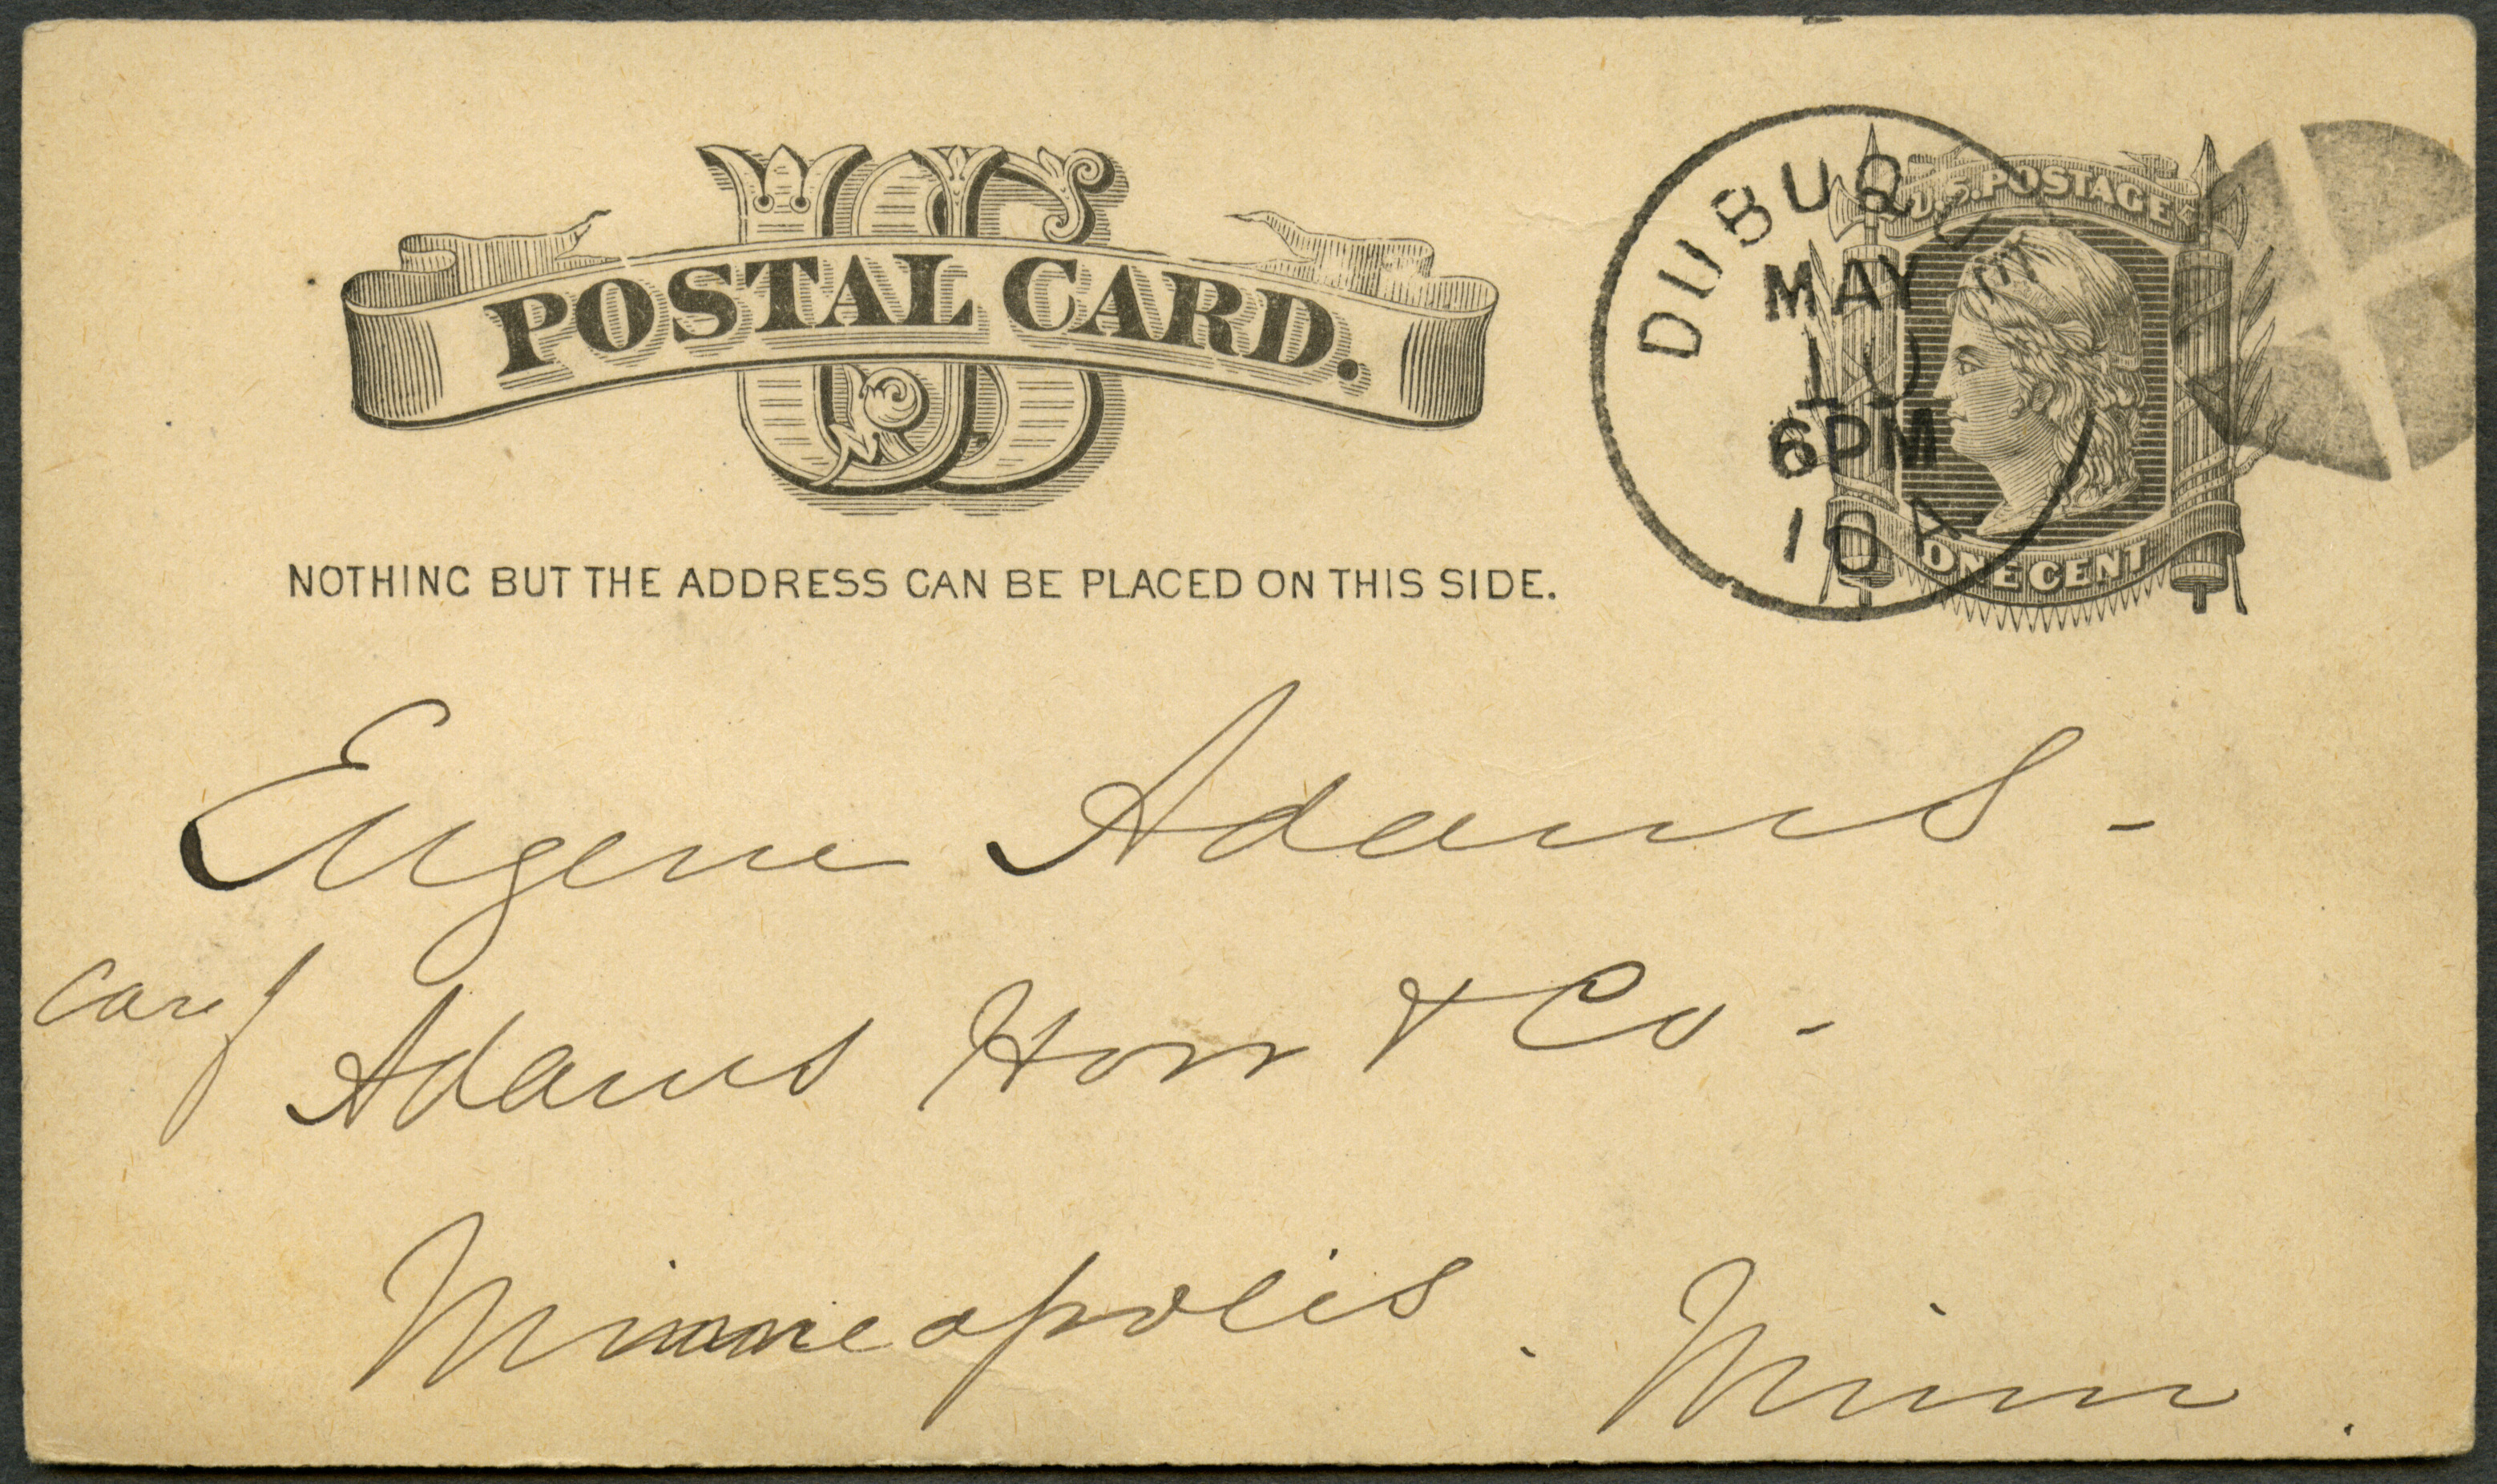 US
POSTAL CARD.
NOTHING BUT THE ADDRESS CAN BE PLACED ON THIS SIDE.
U.S. POSTAGE
ONE CENT
DUBUQUE
MAY
10
6PM
IOA
Eugene Adams -
care of
Adams Horr & Co -
Minneapolis. Minn.